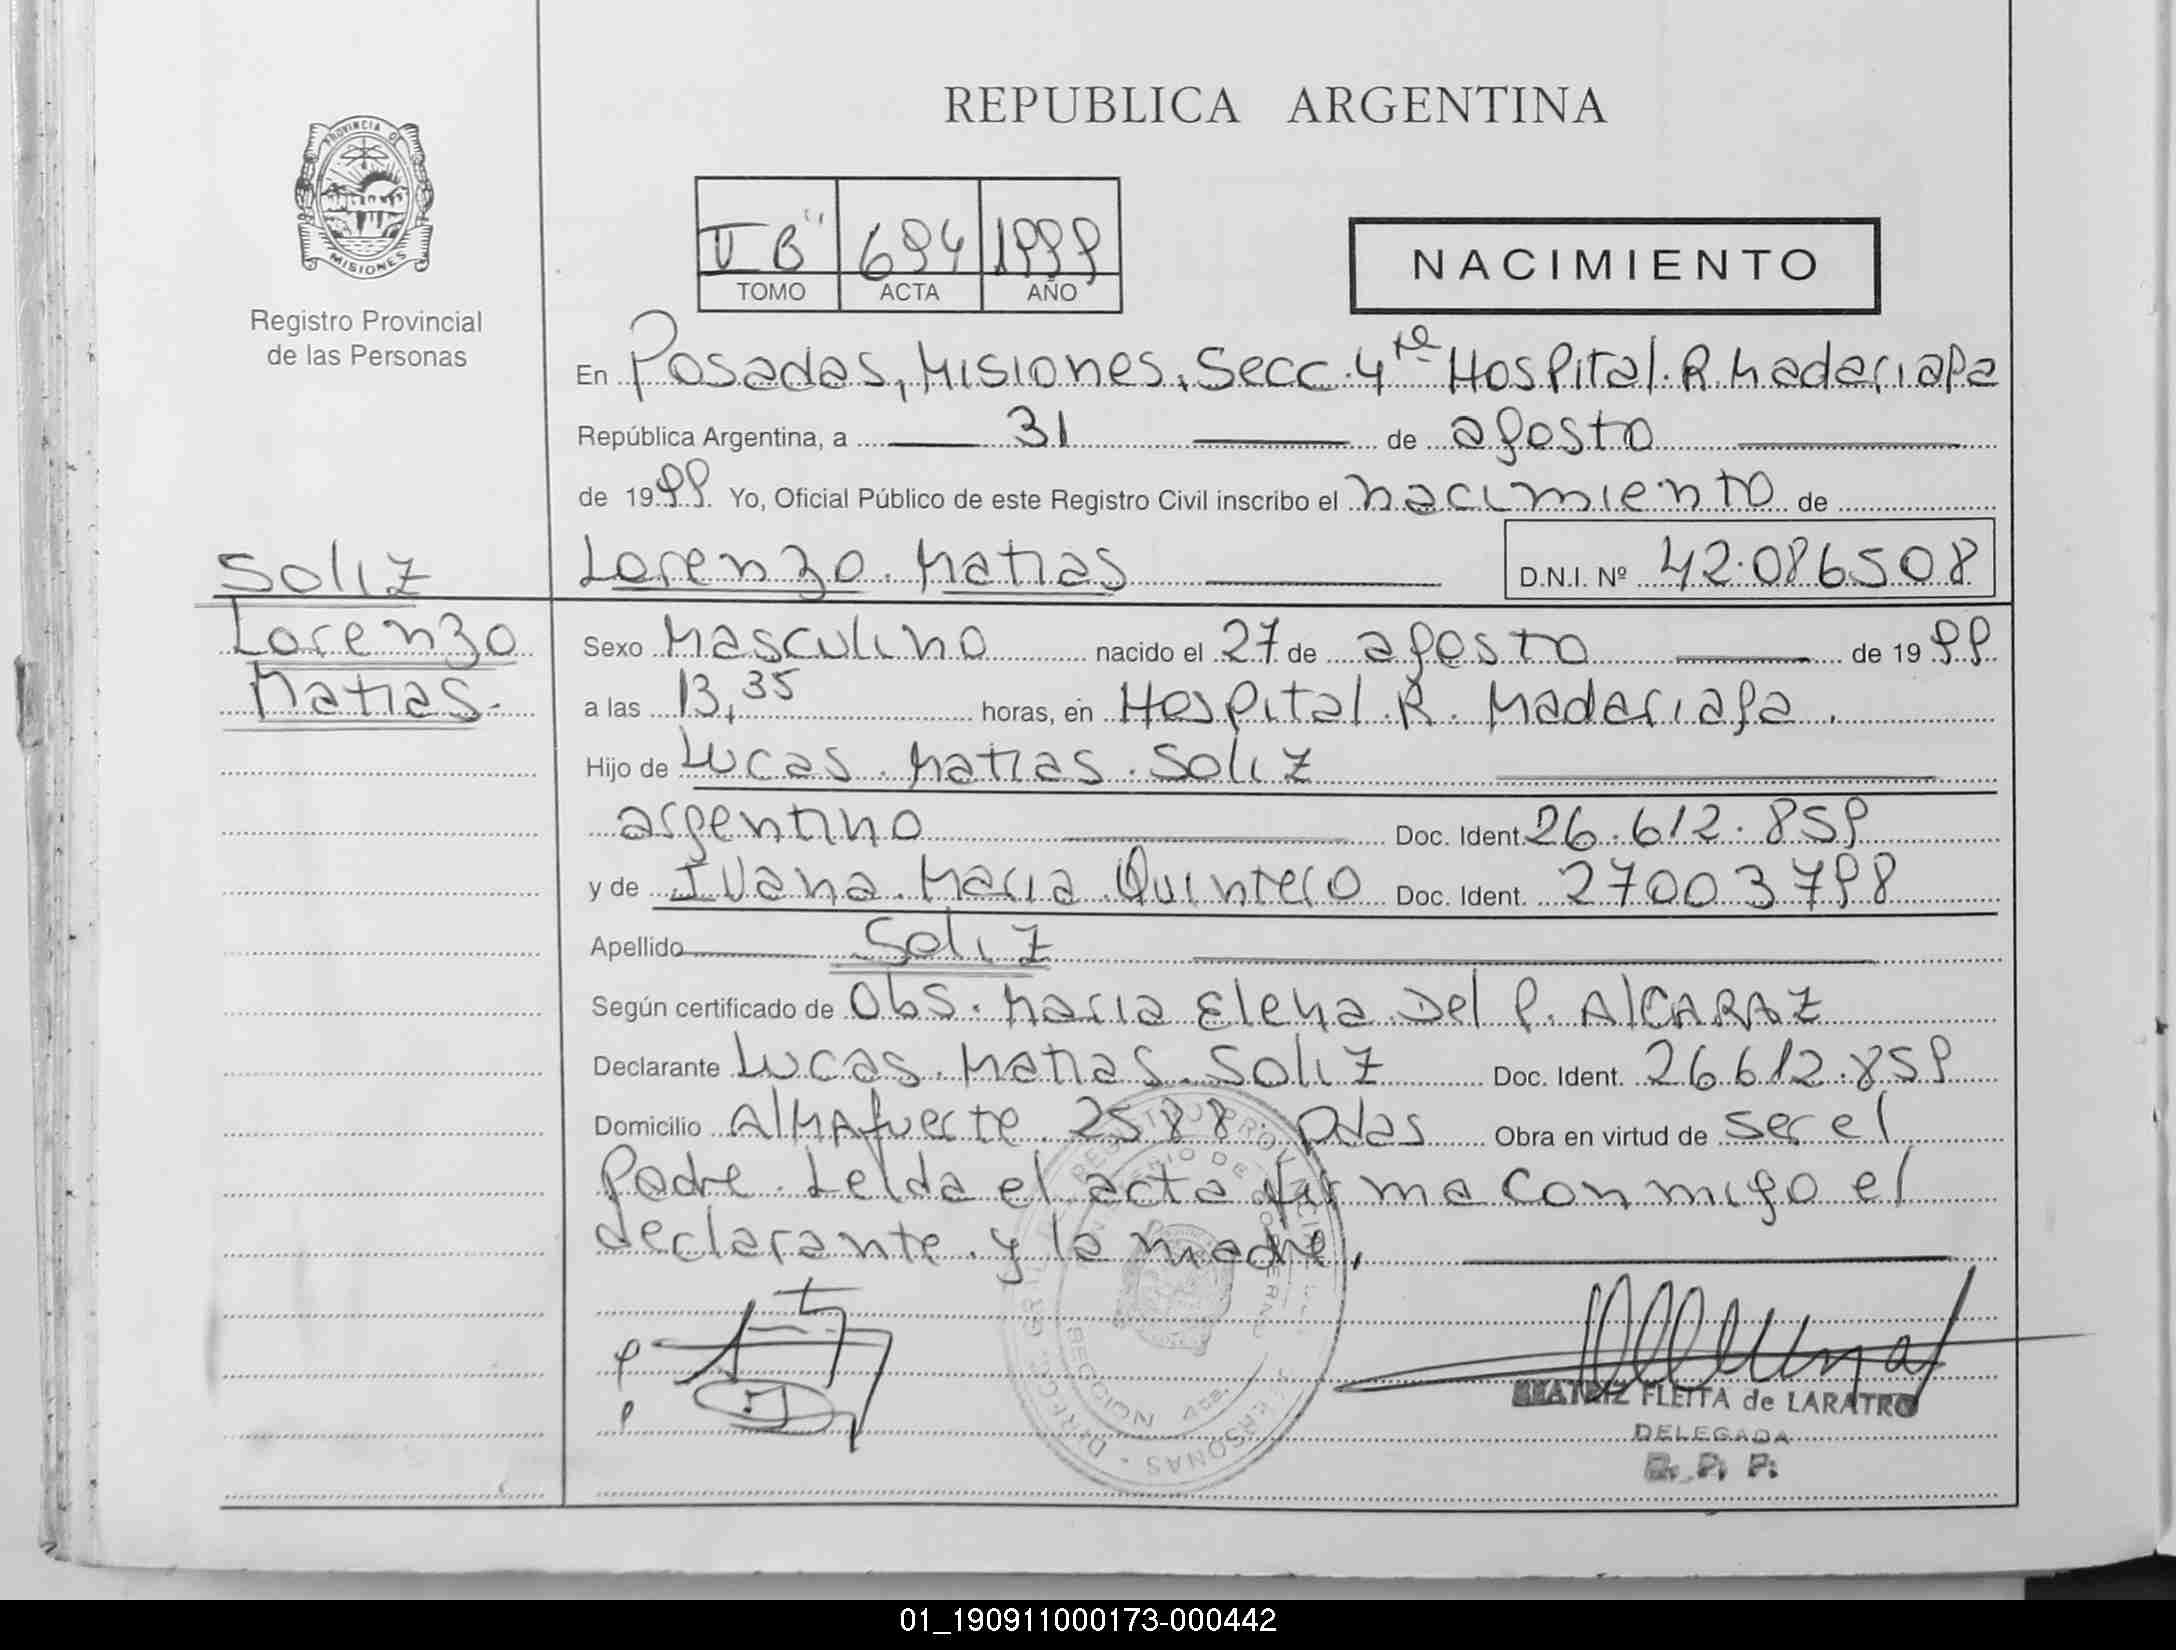 REPUBLICA ARGENTINA
PROVINCIA DE
MISIONES
Registro Provincial
de las Personas
"B" 694 1999
TOMO ACTA AÑO
NACIMIENTO
En Posadas, Misiones. Secc. 4ta Hospital R. Madariaga
República Argentina, a 31 de agosto
de 1999. Yo, Oficial Público de este Registro Civil inscribo el nacimiento de
Lorenzo Matias D.N.I. Nº 42.086508
Soliz
Lorenzo
Matias.
Sexo Masculino nacido el 27 de agosto de 1999
a las 13,35 horas, en Hospital R. Madariaga.
Hijo de Lucas Matias Soliz
argentino Doc. Ident. 26.612.859
y de Ivana Maria Quintero Doc. Ident. 27003798
Apellido Soliz
Según certificado de Obs. Maria Elena Del P. AlCARAZ
Declarante Lucas Matias Soliz Doc. Ident. 26612.859
Domicilio AlMAfuerte 2588 Pdas Obra en virtud de ser el
Padre. Leida el acta firma conmigo el
declarante y la madre,
BEATRIZ FLEITA de LARATRO
DELEGADA
R. P. P.
01_190911000173-000442